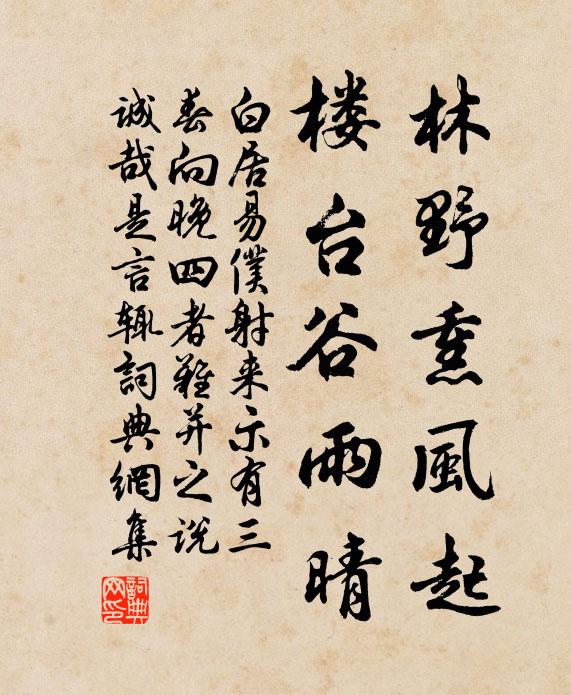 林野熏風起
楼台谷雨晴
白居易僕射来示有三
春向晚四者難并之说
誠哉是言輒詞典網集
詞典网印